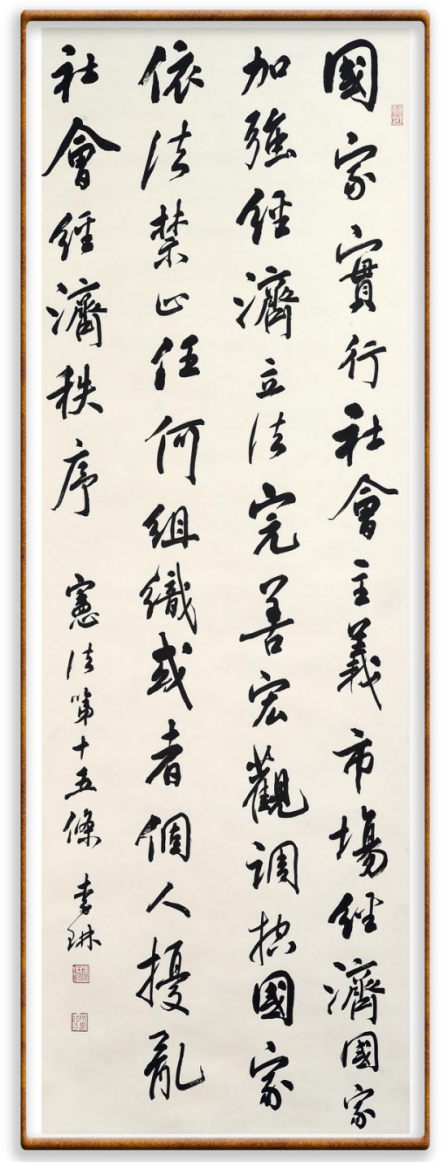 國家實行社會主義市場經濟國家
加強經濟立法完善宏觀調控國家
依法禁止任何組織或者個人擾亂
社會經濟秩序
憲法第十五條 李琳